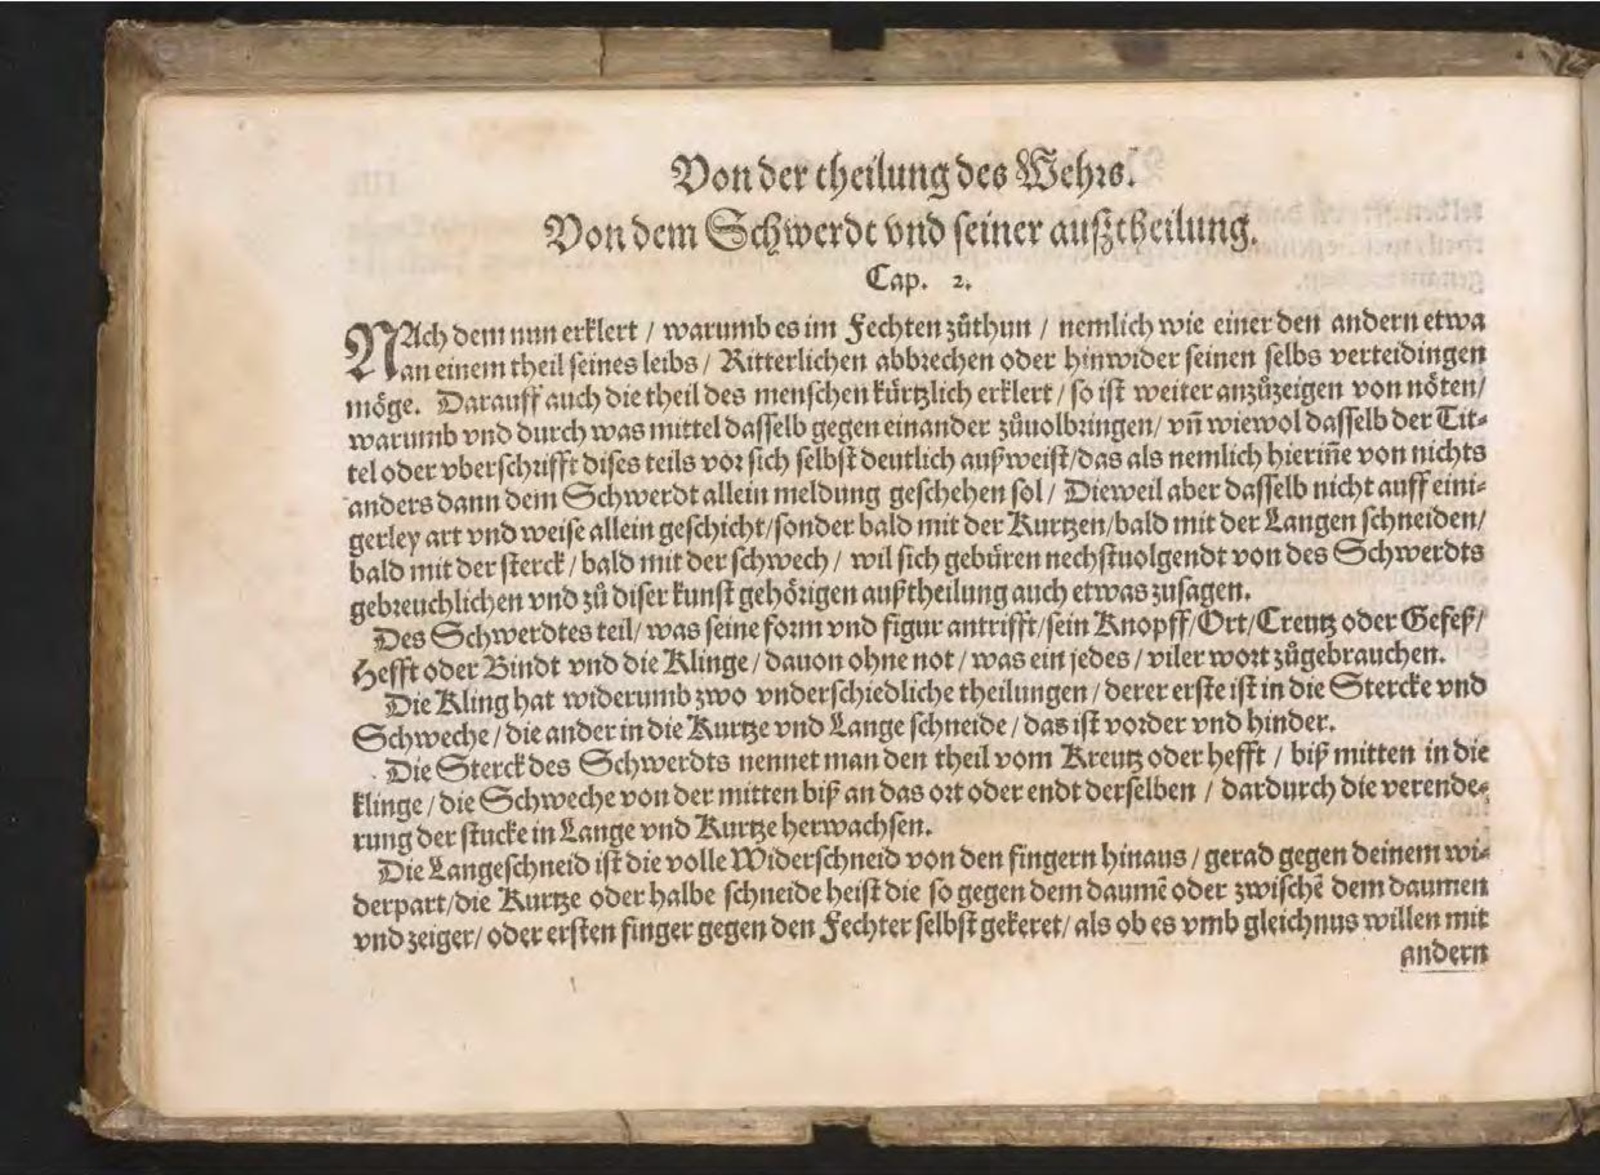 Von der theilung des Wehrs.
Von dem Schwerdt vnd seiner außtheilung.
Cap. 2.
NAch dem nun erklert / warumb es im Fechten zůthun / nemlich wie einer den andern etwa
an einem theil seines leibs / Ritterlichen abbrechen oder hinwider seinen selbs verteidingen
möge. Darauff auch die theil des menschen kürtzlich erklert / so ist weiter anzůzeigen von nöten/
warumb vnd durch was mittel dasselb gegen einander zůuolbringen/ vn̄ wiewol dasselb der Tit⸗
tel oder vberschrifft dises teils vor sich selbst deutlich außweist/das als nemlich hierin̄e von nichts
anders dann dem Schwerdt allein meldung geschehen sol / Dieweil aber dasselb nicht auff eini⸗
gerley art vnd weise allein geschicht/sonder bald mit der Kurtzen/bald mit der Langen schneiden/
bald mit der sterck / bald mit der schwech / wil sich gebüren nechstuolgendt von des Schwerdts
gebreuchlichen vnd zů diser kunst gehörigen außtheilung auch etwas zusagen.
Des Schwerdtes teil/ was seine form vnd figur antrifft/sein Knopff/Ort/Creutz oder Gefeß/
Hefft oder Bindt vnd die Klinge / dauon ohne not / was ein jedes / viler wort zůgebrauchen.
Die Kling hat widerumb zwo vnderschiedliche theilungen / derer erste ist in die Stercke vnd
Schweche / die ander in die Kurtze vnd Lange schneide / das ist vorder vnd hinder.
Die Sterck des Schwerdts nennet man den theil vom Kreutz oder hefft / biß mitten in die
klinge / die Schweche von der mitten biß an das ort oder endt derselben / dardurch die verende⸗
rung der stucke in Lange vnd Kurtze herwachsen.
Die Langeschneid ist die volle Widerschneid von den fingern hinaus / gerad gegen deinem wi⸗
derpart/die Kurtze oder halbe schneide heist die so gegen dem daumē oder zwischē dem daumen
vnd zeiger/ oder ersten finger gegen den Fechter selbst gekeret/ als ob es vmb gleichnus willen mit
andern